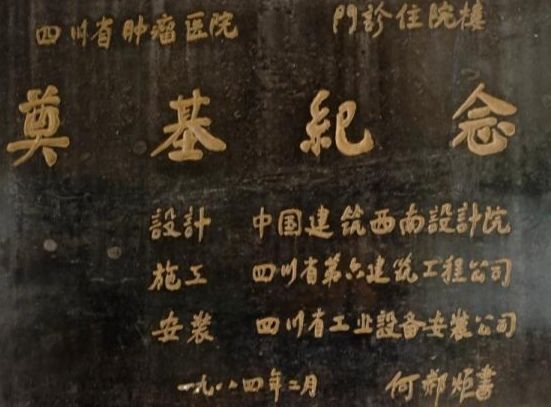 四川省肿瘤医院 門診住院楼
奠基紀念
設計 中国建筑西南設計院
施工 四川省第六建筑工程公司
安装 四川省工业設备安装公司
一九八四年二月 何郝炬書